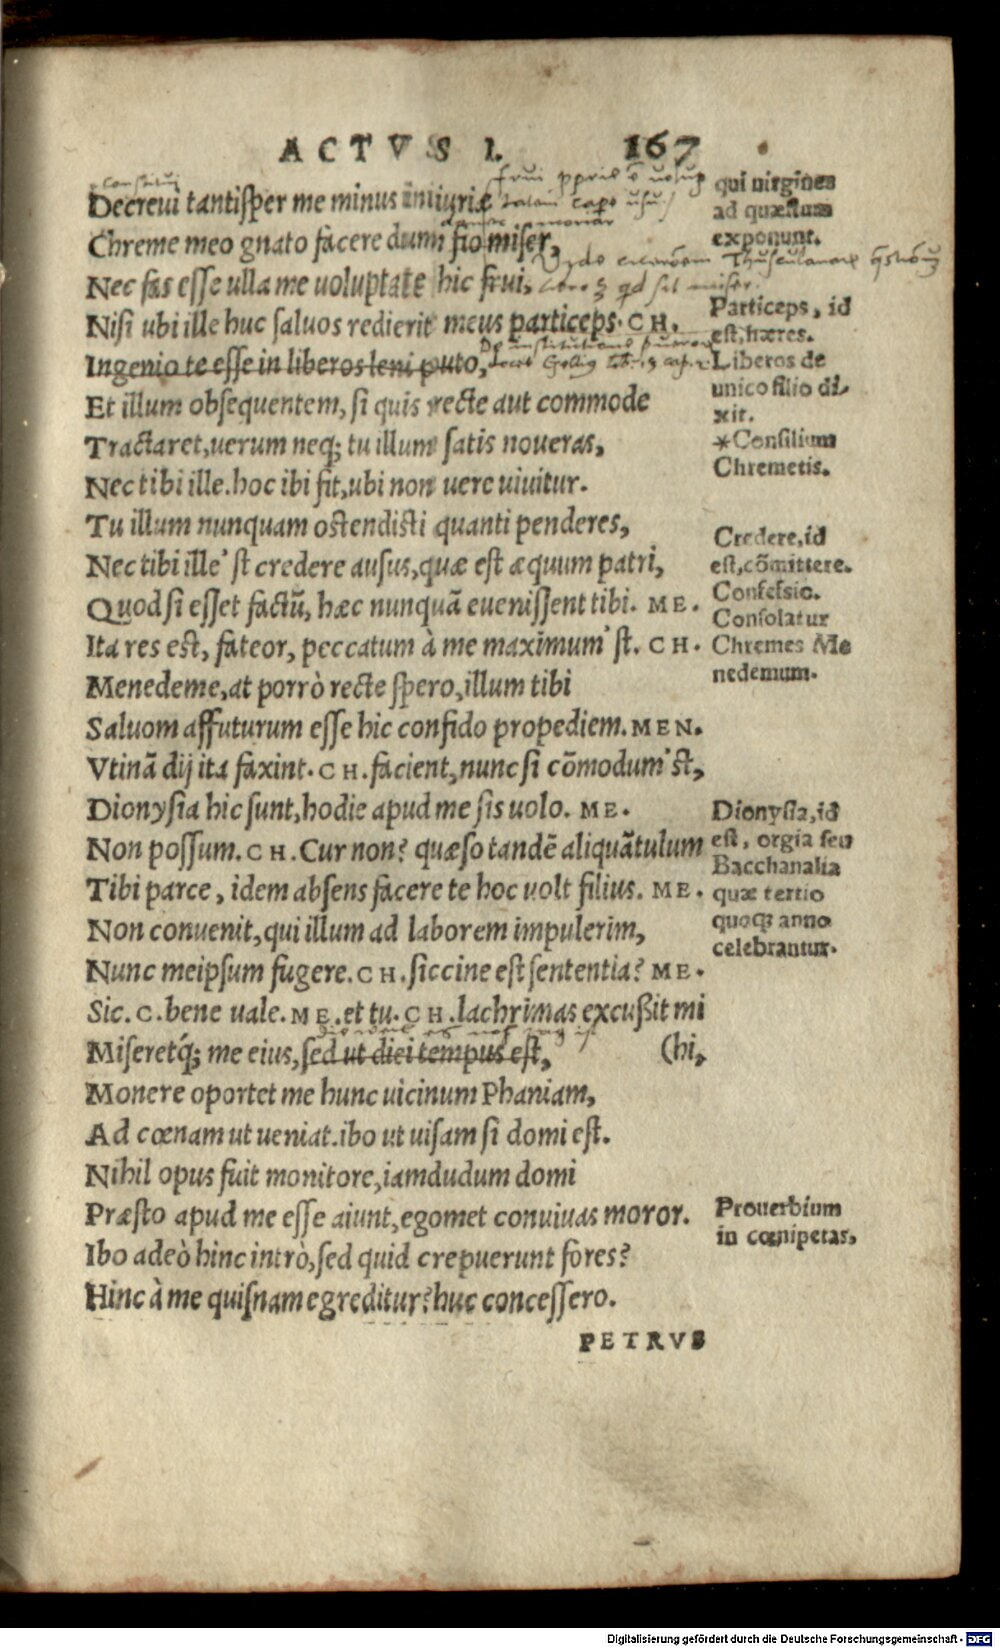 ACTVS I. 167
Decreui tantiſper me minus iniuriæ
Chreme meo gnato facere dum fio miſer,
Nec fas eſſe ulla me uoluptate hic frui,
Niſi ubi ille huc ſaluos redierit meus particeps. CH.
Ingenio te eſſe in liberos leni puto,
Et illum obſequentem, ſi quis recte aut commode
Tractaret, uerum neq; tu illum ſatis noueras,
Nec tibi ille. hoc ibi fit, ubi non uere uiuitur.
Tu illum nunquam oſtendiſti quanti penderes,
Nec tibi ille'ſt credere auſus, quæ eſt æquum patri,
Quod ſi eſſet factũ, hæc nunquã eueniſſent tibi. ME.
Ita res eſt, fateor, peccatum à me maximum'ſt. CH.
Menedeme, at porrò recte ſpero, illum tibi
Saluom affuturum eſſe hic confido propediem. MEN.
Vtinã dij ita faxint. CH. facient, nunc ſi cõmodum'ſt,
Dionyſia hic ſunt, hodie apud me ſis uolo. ME.
Non poſſum. CH. Cur non? quæſo tandẽ aliquãtulum
Tibi parce, idem abſens facere te hoc uolt filius. ME.
Non conuenit, qui illum ad laborem impulerim,
Nunc meipſum fugere. CH. ſiccine eſt ſententia? ME.
Sic. C. bene uale. ME. et tu. CH. lachrimas excußit mi
Miſeretq́; me eius, ſed ut diei tempus eſt, (hi,
Monere oportet me hunc uicinum Phaniam,
Ad cœnam ut ueniat. ibo ut uiſam ſi domi eſt.
Nihil opus fuit monitore, iamdudum domi
Præſto apud me eſſe aiunt, egomet conuiuas moror.
Ibo adeò hinc intrò, ſed quid crepuerunt fores?
Hinc à me quiſnam egreditur? huc conceſſero.
PETRVS
qui uirgines
ad quæſtum
exponunt.
Particeps, id
eſt, hæres.
Liberos de
unico filio di-
xit.
*Conſilium
Chremetis.
Credere, id
eſt, cõmittere.
Confeſsio.
Conſolatur
Chremes Me
nedemum.
Dionyſia, id
eſt, orgia ſeu
Bacchanalia
quæ tertio
quoq; anno
celebrantur.
Prouerbium
in cœnipetas,
Digitalisierung gefördert durch die Deutsche Forschungsgemeinschaft - DFG